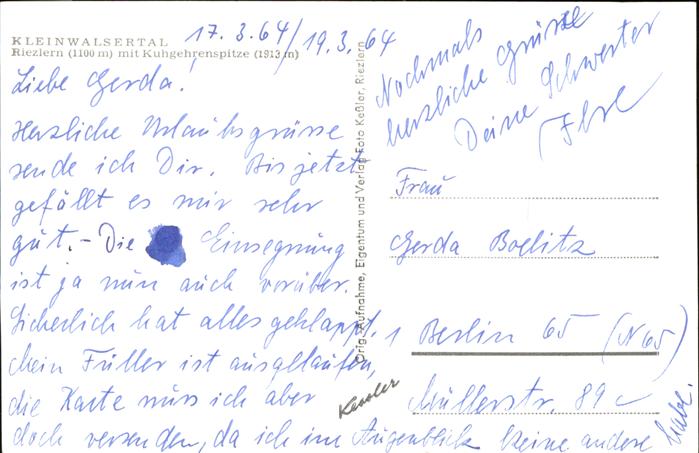 KLEINWALSERTAL
Riezlern (1100 m) mit Kuhgehrenspitze (1913 m)
17.3.64/19.3.64
Liebe Gerda!
Herzliche Urlaubsgrüsse
sende ich Dir. Bis jetzt
gefällt es mir sehr
gut. - Die Einsegnung
ist ja nun auch vorüber.
Sicherlich hat alles geklappt.
Mein Füller ist ausgelaufen,
die Karte muss ich aber
doch versenden, da ich im Augenblick keine andere
habe.
Nochmals
herzliche Grüsse
Deine Schwester
Ilse
Orig.-Aufnahme, Eigentum und Verlag Foto Keßler, Riezlern
Kessler
Frau
Gerda Boelitz
1 Berlin 65 (N65)
Müllerstr. 89c